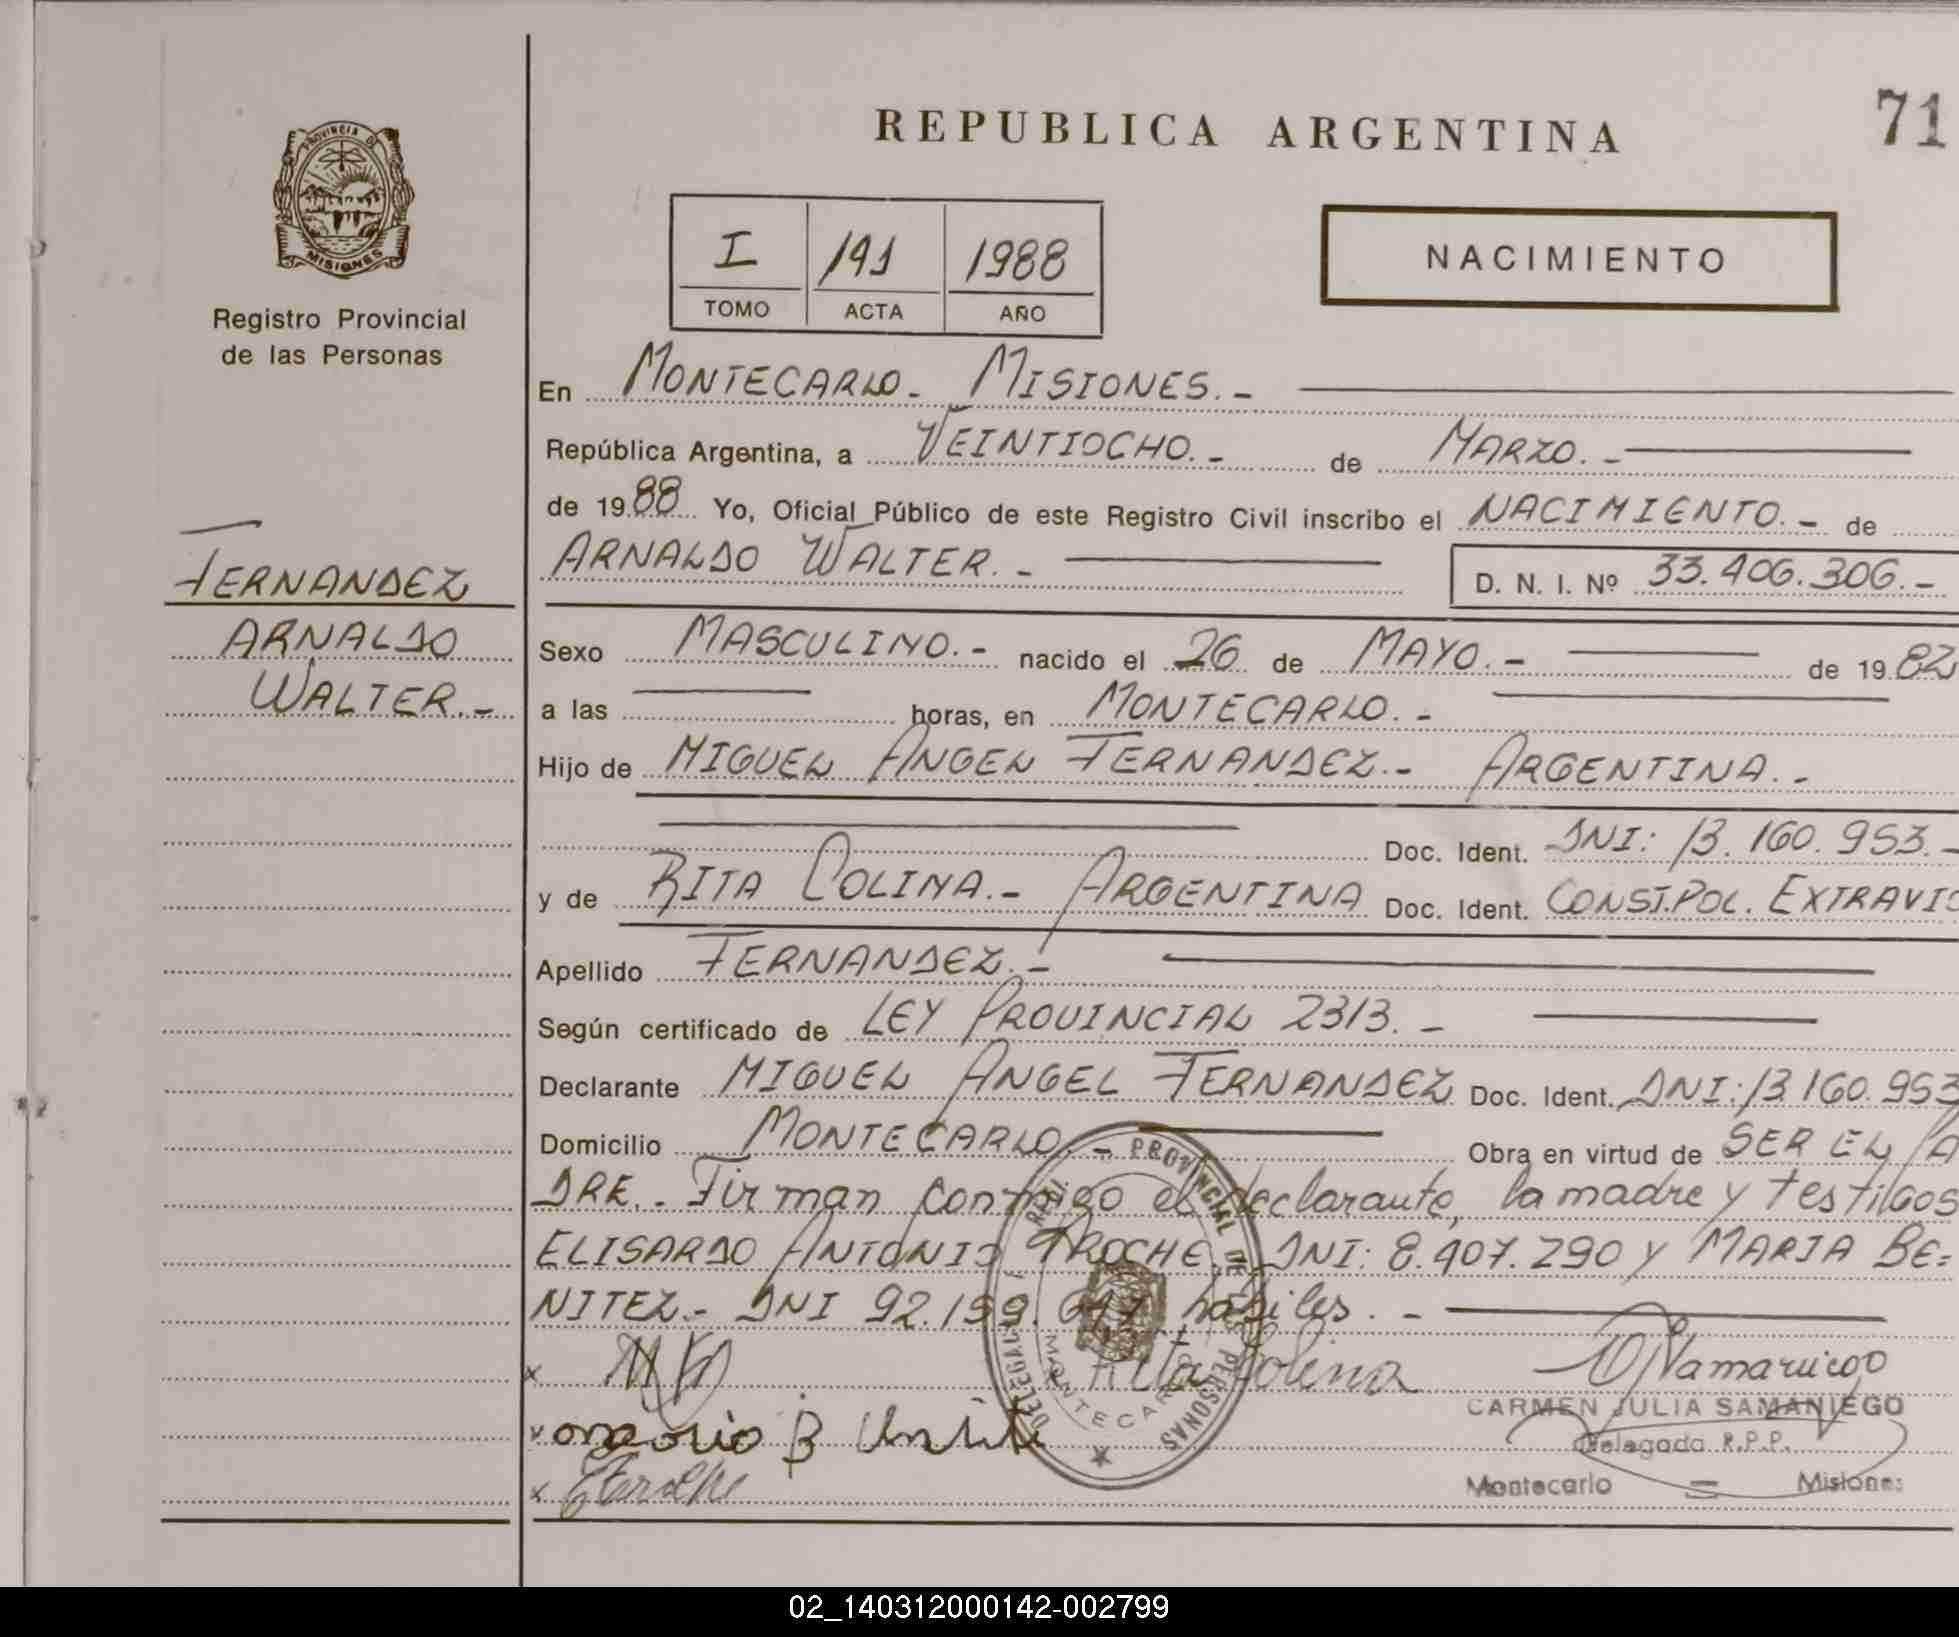 REPUBLICA ARGENTINA
71
PROVINCIA DE
MISIONES
Registro Provincial
de las Personas
I
191
1988
TOMO
ACTA
AÑO
NACIMIENTO
En MONTECARLO.- MISIONES.-
República Argentina, a VEINTIOCHO.- de MARZO.-
de 1988 Yo, Oficial Público de este Registro Civil inscribo el NACIMIENTO.- de
ARNALDO WALTER.-
D. N. I. Nº 33.406.306.-
FERNANDEZ
ARNALDO
WALTER.-
Sexo MASCULINO.- nacido el 26 de MAYO.- de 1982
a las horas, en MONTECARLO.-
Hijo de MIGUEL ANGEL FERNANDEZ.- ARGENTINA.-
Doc. Ident. DNI: 13.160.953.-
y de RITA COLINA.- ARGENTINA Doc. Ident. CONST.POL. EXTRAVIO
Apellido FERNANDEZ.-
Según certificado de LEY PROVINCIAL 2313.-
Declarante MIGUEL ANGEL FERNANDEZ Doc. Ident. DNI:13.160.953
Domicilio MONTECARLO.- Obra en virtud de SER EL PA
DRE.- Firman conmigo el declarante, la madre y testigos
ELISARDO ANTONIO AROCHE. DNI: 8.407.290 y MARIA BE=
NITEZ.- DNI 92.199. habiles.-
Rita Colina
CARMEN JULIA SAMANIEGO
Delegada R.P.P.
Montecarlo - Misiones
PROVINCIAL DE LAS PERSONAS
MONTECARLO
02_140312000142-002799